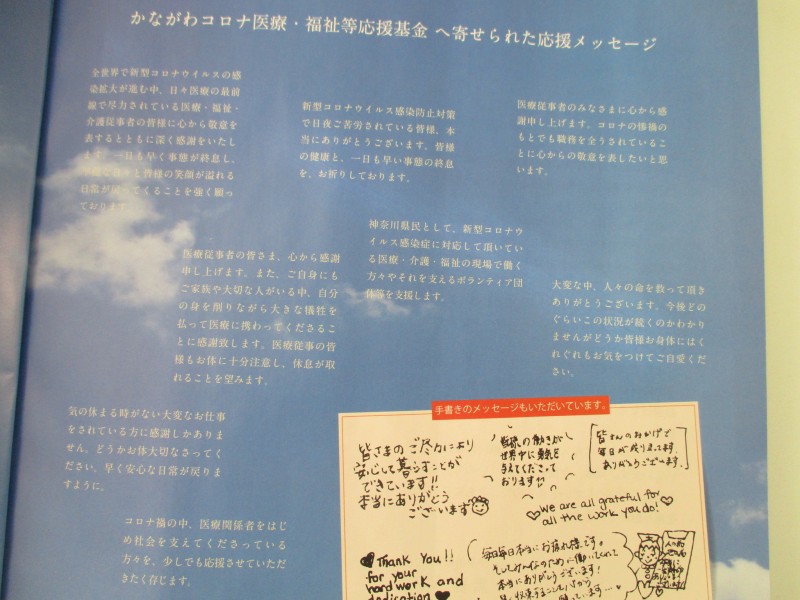 かながわコロナ医療・福祉等応援基金 へ寄せられた応援メッセージ
全世界で新型コロナウイルスの感
染拡大が進む中、日々医療の最前
線で尽力されている医療・福祉・
介護従事者の皆様に心から敬意を
表するとともに深く感謝をいたし
ます。一日も早く事態が終息し、
皆様の笑顔が溢れる
日常が戻ってくることを強く願っ
ております。
新型コロナウイルス感染防止対策
で日夜ご苦労されている皆様、本
当にありがとうございます。皆様
の健康と、一日も早い事態の終息
を、お祈りしております。
医療従事者のみなさまに心から感
謝申し上げます。コロナの惨禍の
もとでも職務を全うされているこ
とに心からの敬意を表したいと思
います。
医療従事者の皆さま、心から感謝
申し上げます。また、ご自身にも
ご家族や大切な人がいる中、自分
の身を削りながら大きな犠牲を
払って医療に携わってくださるこ
とに感謝致します。医療従事の皆
様もお体に十分注意し、休息が取
れることを望みます。
神奈川県民として、新型コロナウ
イルス感染症に対応して頂いてい
る医療・介護・福祉の現場で働く
方々やそれを支えるボランティア団
体等を支援します。
大変な中、人々の命を救って頂き
ありがとうございます。今後どの
ぐらいこの状況が続くのかわかり
ませんがどうか皆様お身体にはく
れぐれもお気をつけてご自愛くだ
さい。
気の休まる時がない大変なお仕事
をされている方に感謝しかありま
せん。どうかお体大切なさってく
ださい。早く安心な日常が戻りま
すように。
コロナ禍の中、医療関係者をはじ
め社会を支えてくださっている
方々を、少しでも応援させていた
だきたく存じます。
手書きのメッセージもいただいています。
皆さまのご尽力により
安心して暮らすことが
できています!!
本当にありがとう
ございます
皆様の働きが
世界中に勇気を
与えてくださって
おります!?
皆さんのおかげで
毎日が成り立ってます
ありがとうございます。
We are all grateful for
all the work you do!
Thank You!!
for your
hard work and
dedication
毎日毎日本当にお疲れ様です。
そしてみんなのために働いてくれて
本当にありがとうございます!